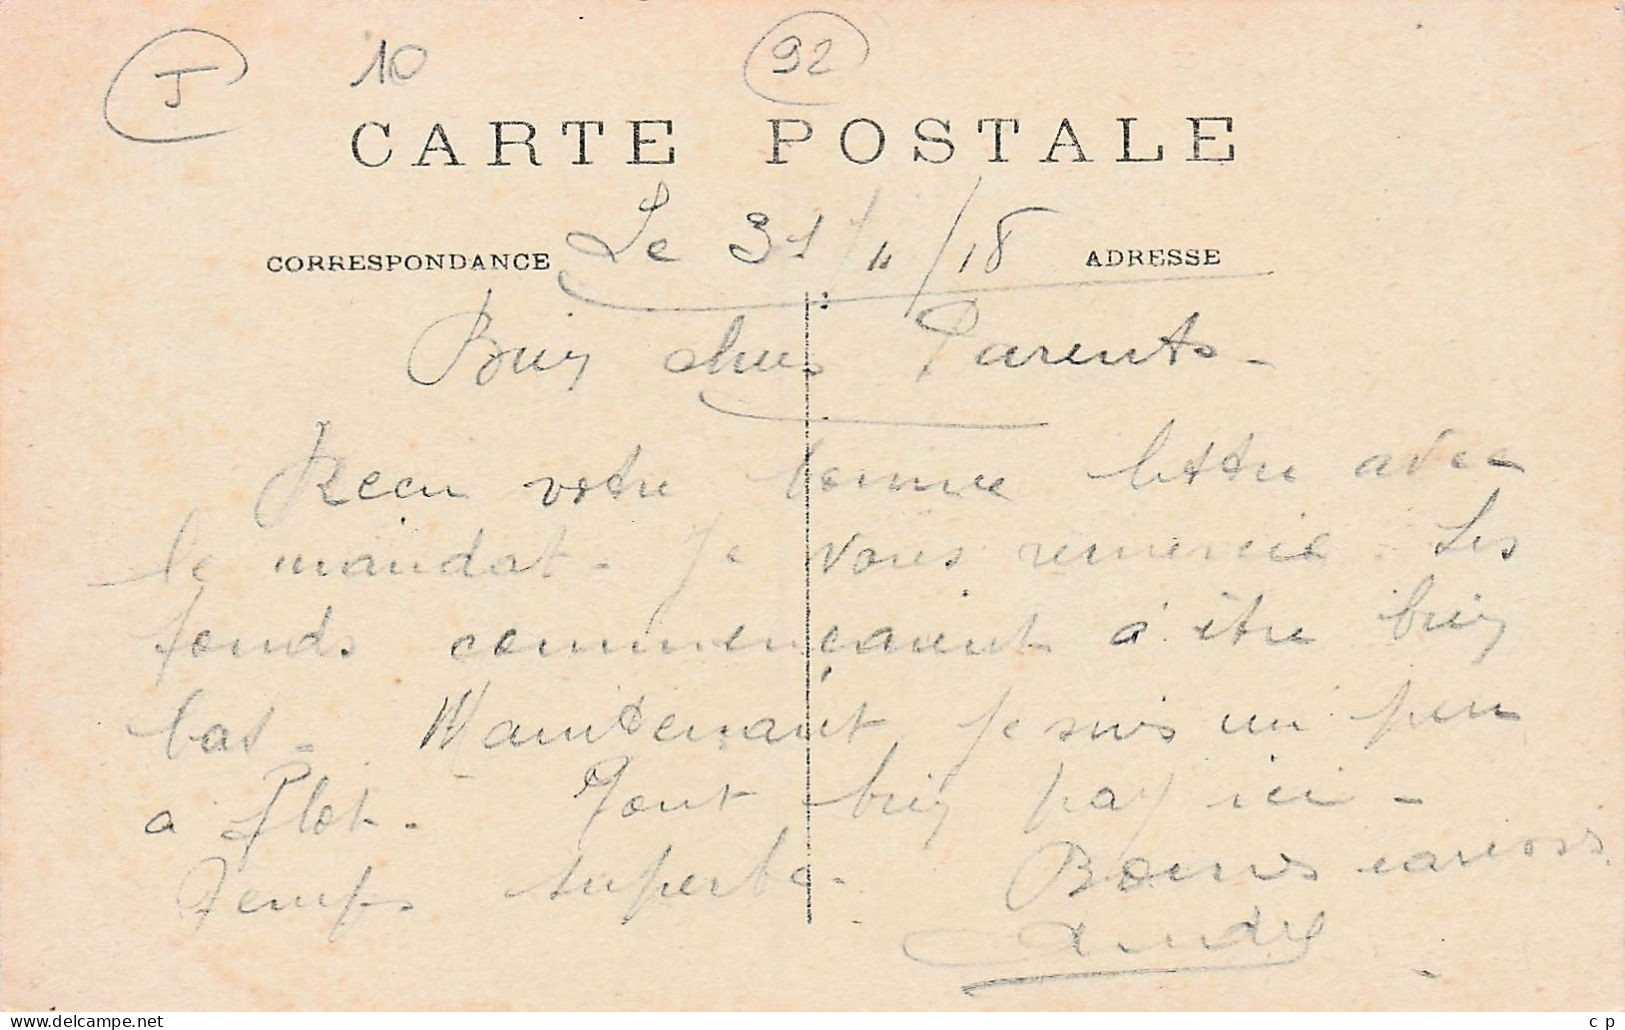 J 10 92
CARTE POSTALE
CORRESPONDANCE Le 31/ /18 ADRESSE
Bien chers Parents -
Reçu votre bonne lettre avec
le mandat - Je vous remercie. Les
fonds commençaient à être bien
bas - Maintenant je suis un peu
à flot. Tout bien par ici -
Temps superbe - Bonnes caresses
André
www.delcampe.net
c_p